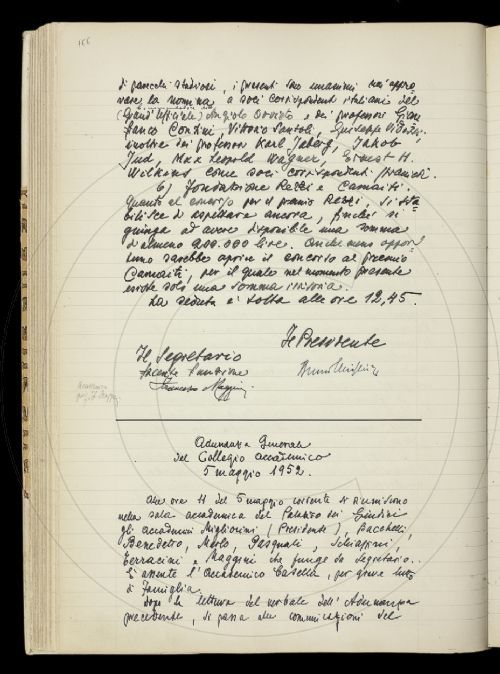 166
di parecchi studiosi, i presenti sono unanimi nell'appro=
vare la nomina a soci corrispondenti italiani del
(Grand'Ufficiale) Angiolo Orvieto e dei professori Gian
franco Contini, Vittorio Santoli, Giuseppe Vidossi,
inoltre dei professori Karl Jaberg, Jakob
Jud, Max Leopold Wagner, Ernest H.
Wilkins come soci corrispondenti stranieri.
6) Fondazione Rezzi e Camaiti.
Quanto al concorso per il premio Rezzi, si sta=
bilisce di aspettare ancora, finché si
giunga ad avere disponibile una somma
di almeno 200.000 lire. Anche meno oppor=
tuno sarebbe aprire il concorso al premio
Camaiti, per il quale nel momento presente
esiste solo una somma irrisoria.
La seduta è tolta alle ore 12,45.
Il Presidente
Il Segretario
facente funzione
Bruno Migliorini
Francesco Maggini
Accademico
prof. F. Maggini
Adunanza Generale
del Collegio accademico
5 maggio 1952.
Alle ore 11 del 5 maggio corrente si riuniscono
nella sala accademica del Palazzo dei Giudici
gli accademici Migliorini (Presidente), Bacchelli,
Benedetto, Merlo, Pasquali, Schiaffini,
Terracini e Maggini che funge da Segretario.
È assente l'Accademico Casella, per grave lutto
di famiglia.
Dopo la lettura del verbale dell'Adunanza
precedente, si passa alle comunicazioni del